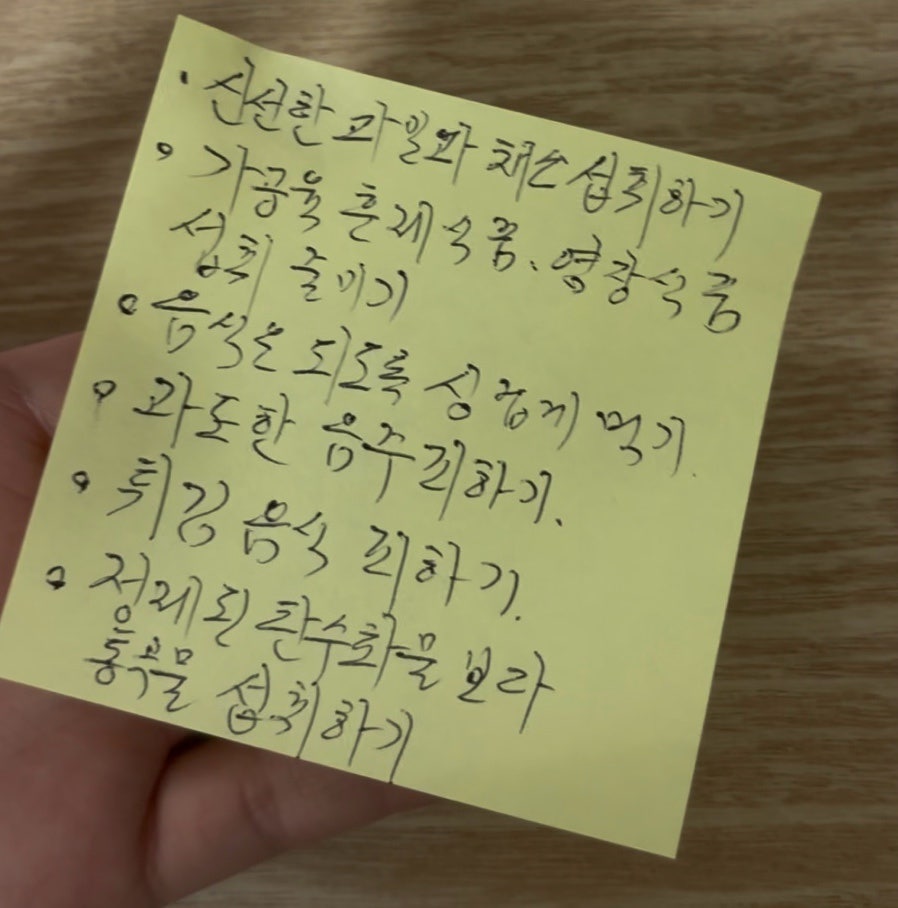 · 신선한 과일과 채소 섭취하기
· 가공육 훈제식품、염장식품
섭취 줄이기
· 음식은 되도록 싱겁게 먹기.
· 과도한 음주 피하기.
· 튀김 음식 피하기.
· 정제된 탄수화물 보다
통곡물 섭취하기